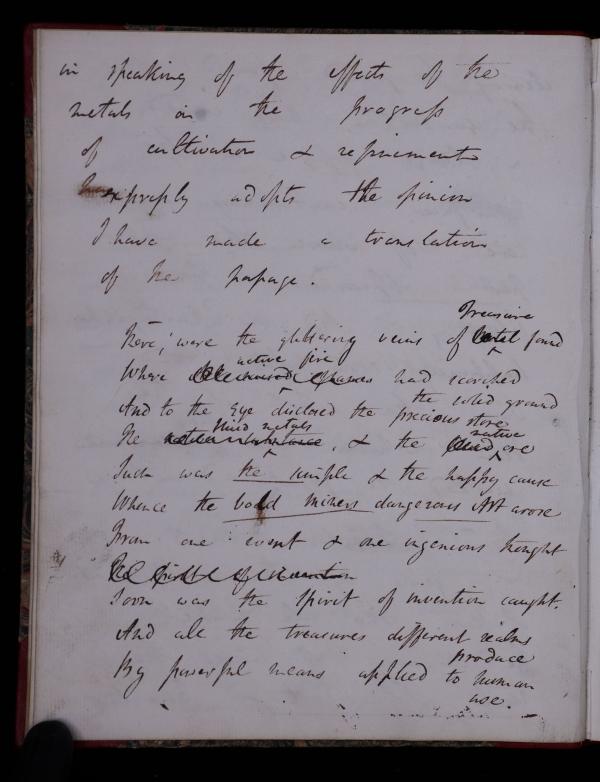 in speaking of the effects of the
metals on the progress
of cultivation & refinement
expressly adopts the opinion
I have made a translation
of the passage.
Here, were the glittering veins of Treasure found
Where active fire had scorched
the solid ground
And to the Eye disclosed the precious store
The fluid metals, & the native ore
Such was the simple & the happy cause
Whence the bold miners dangerous Art arose
From one event & one ingenious thought
Soon was the spirit of invention caught.
And all the treasures different realms
produce
By powerful means applied to human
use.